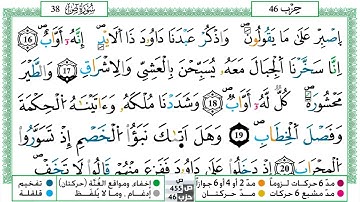 سورة ص 38
حزب 46
16 اصْبِرْ عَلَىٰ مَا يَقُولُونَ وَاذْكُرْ عَبْدَنَا دَاوُودَ ذَا الْأَيْدِ إِنَّهُ أَوَّابٌ
إِنَّا سَخَّرْنَا الْجِبَالَ مَعَهُ يُسَبِّحْنَ بِالْعَشِيِّ وَالْإِشْرَاقِ 17 وَالطَّيْرَ
مَحْشُورَةً كُلٌّ لَهُ أَوَّابٌ 18 وَشَدَدْنَا مُلْكَهُ وَءَاتَيْنَاهُ الْحِكْمَةَ
وَفَصْلَ الْخِطَابِ 19 وَهَلْ أَتَاكَ نَبَؤُا الْخَصْمِ إِذْ تَسَوَّرُوا
الْمِحْرَابَ 20 إِذْ دَخَلُوا عَلَىٰ دَاوُودَ فَفَزِعَ مِنْهُمْ قَالُوا لَا تَخَفْ
مدّ 6 حركات لزوماً مدّ 2 أو 4 أو 6 جوازاً
مدّ مشبع 6 حركات مدّ حركتان
ص 455
حزب 46
إخفاء، ومواقع الغُنَّة (حركتان) تفخيم
إدغام، وما لا يُلفَظ قلقلة